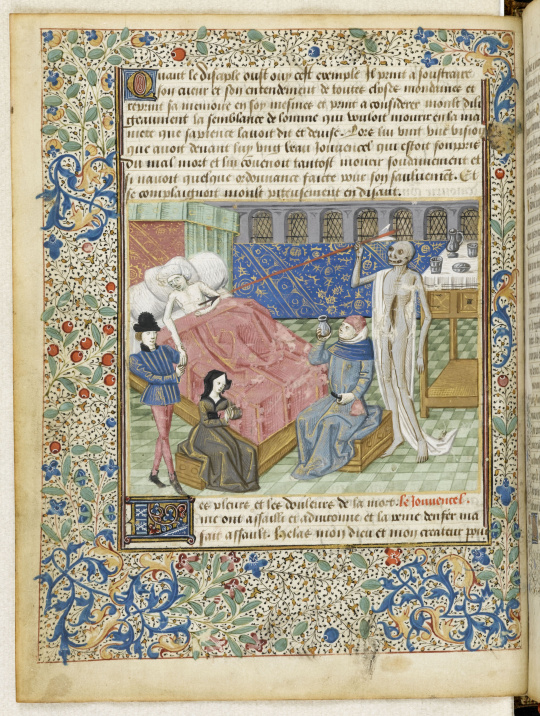 Quant le disciple oust ouy cest exemple Il print a soustraire
son cueur et son entendement de toutes choses mondaines et
reduit sa memoire en soy mesmes et print a considerer moult dili
geaument la semblance de lomme qui vouloit mourir en la ma
niere que sapience lauoit dit et deuise. Lors lui vint vne vision
que auoit deuant luy vng beau Jouuencel qui estoit sourpris
du mal mort et lui couenoit tantost mourir soudainement et
nauoit quelque ordonnance faicte pour son sauluement. Et
se complaignoit moult piteusement en disant.
Les pleurs et les douleurs de la mort le Jouuencel.
que ont assailli et aduironne et la peine denfer ma
fait assault. helas mon dieu et mon createur pour